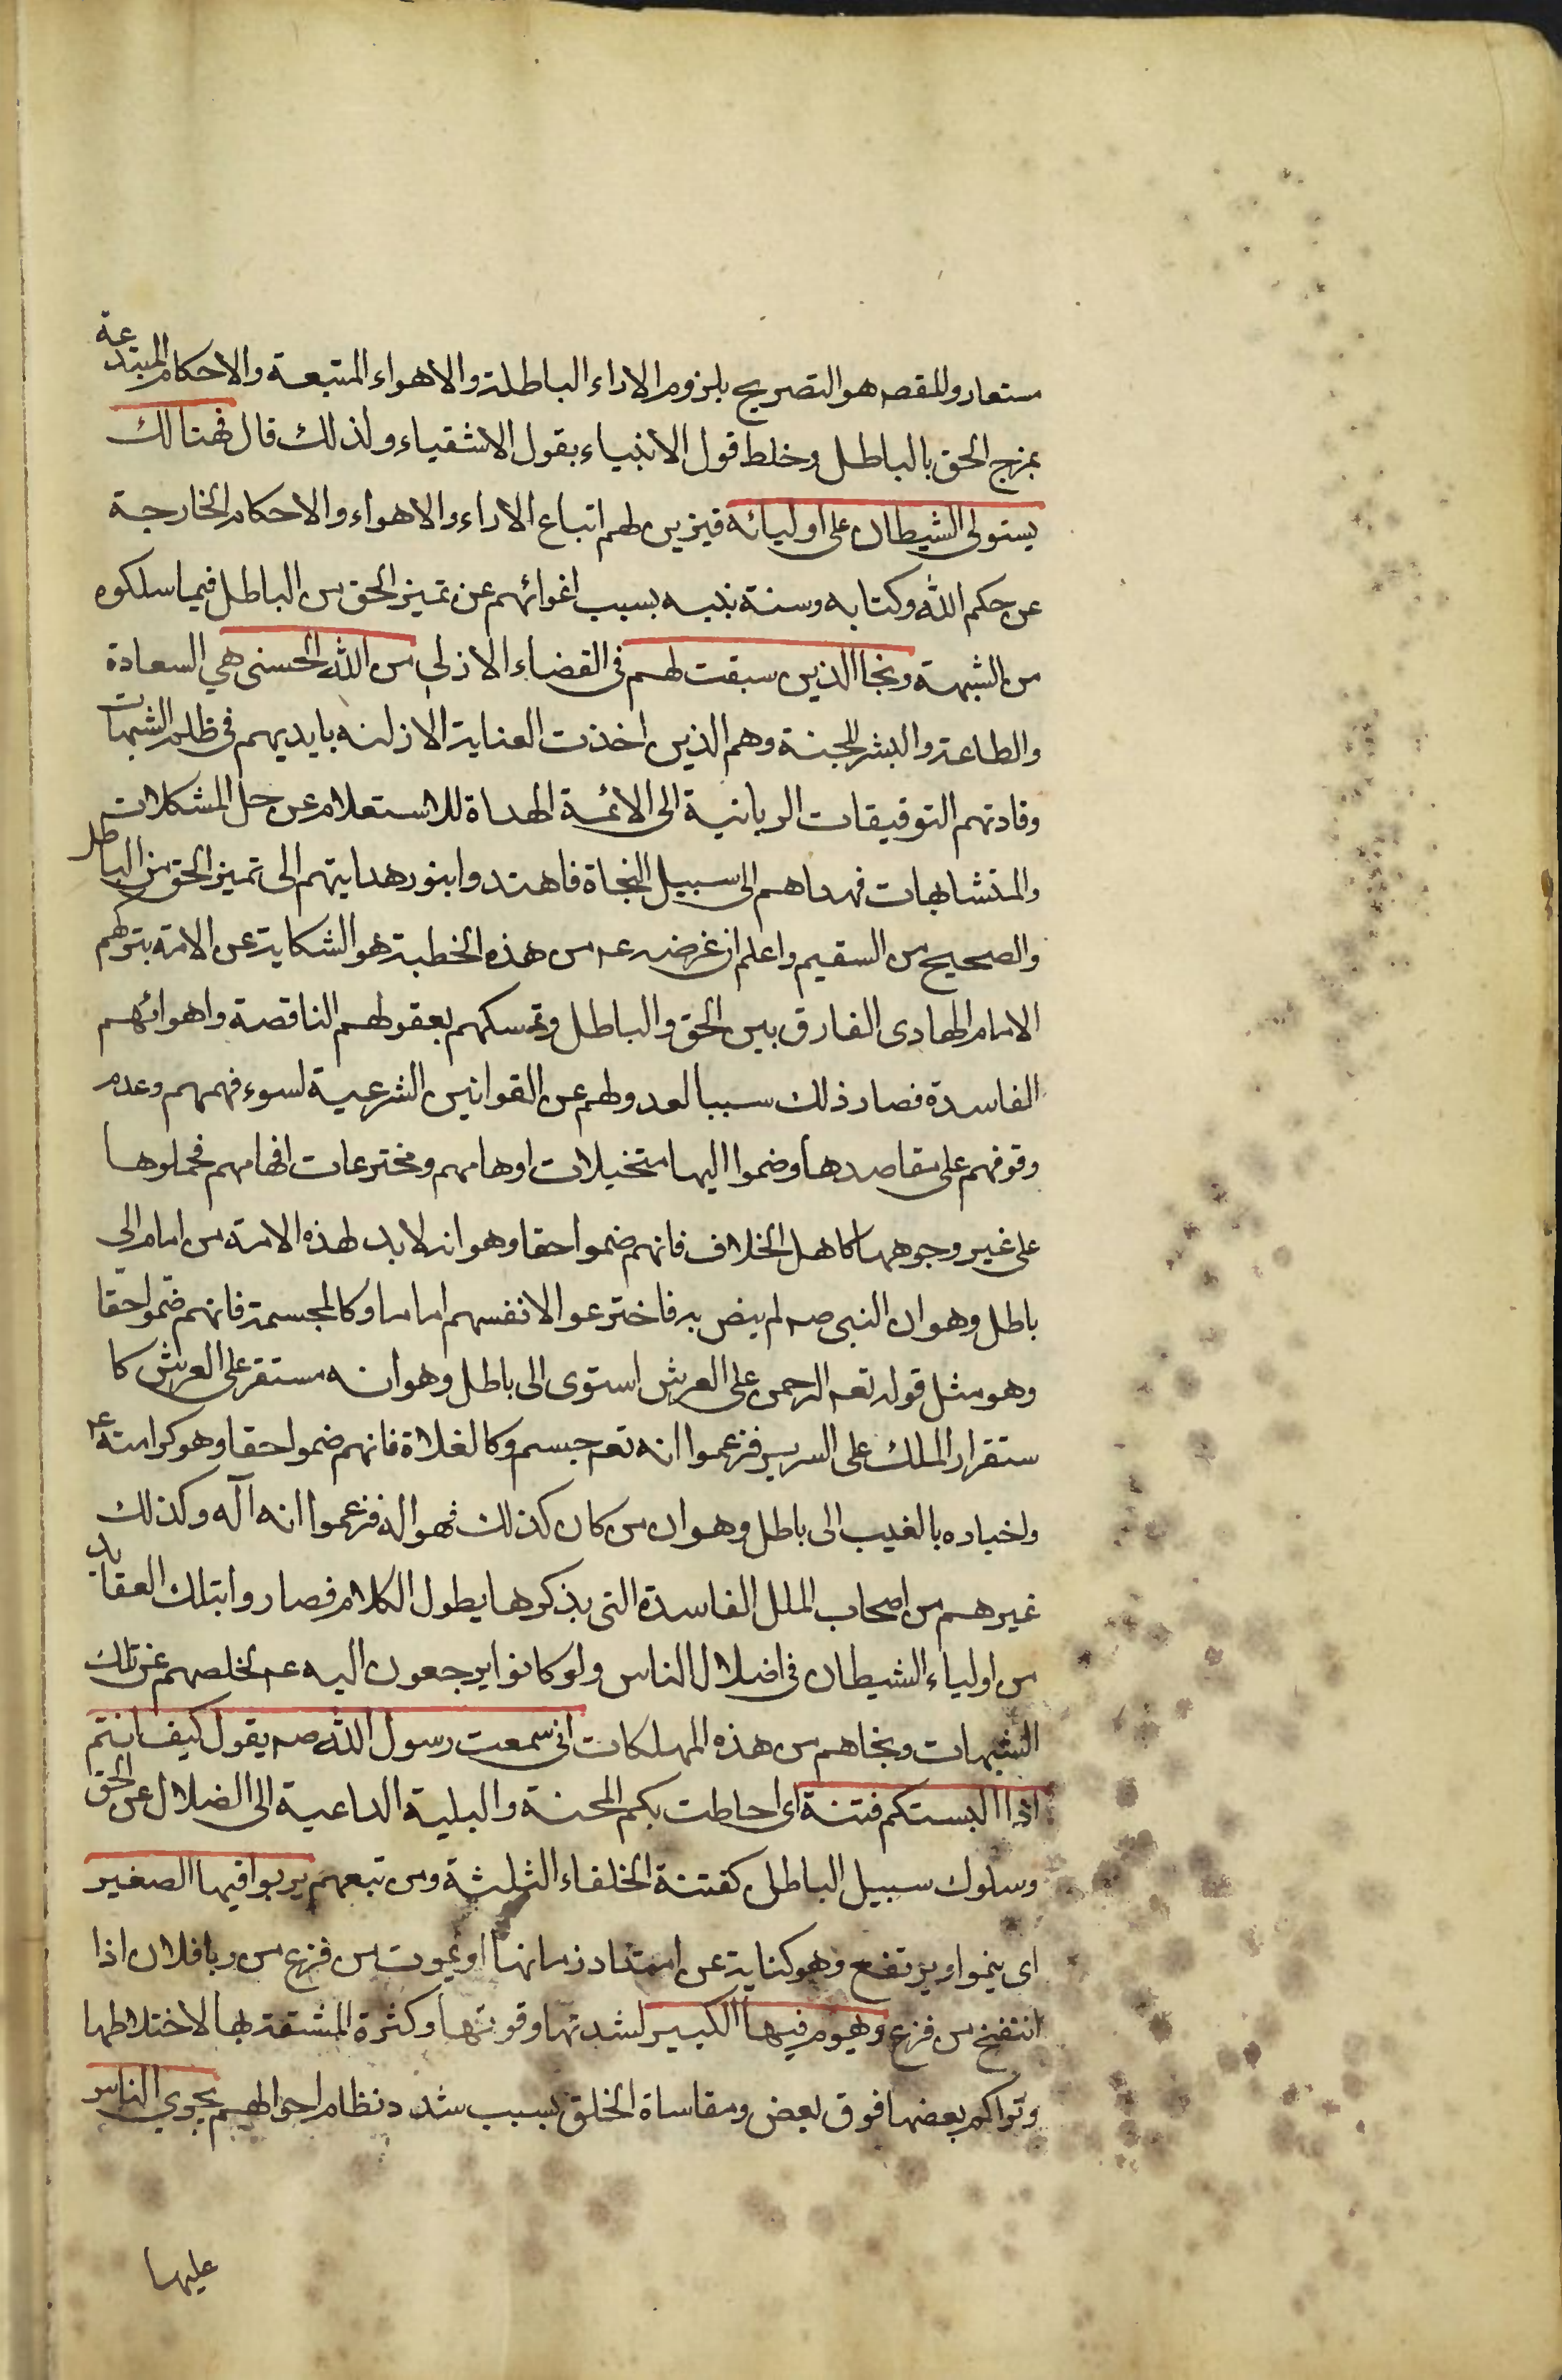 مستعار وللقصه هو التصريح بلزوم الاراء الباطلة والاهواء المتبعة والاحكام المبتدعة
بمزج الحق بالباطل وخلط قول الانبياء بقول الاشقياء ولذلك قال فهنالك
يستولى الشيطان على اوليائه فيزين لهم اتباع الاراء والاهواء والاحكام الخارجة
عن حكم الله وكتابه وسنة نبيه بسبب اغوائهم عن تميز الحق من الباطل فيما سلكوه
من الشبهة ونجا الذين سبقت لهم فى القضاء الازلى من الله الحسنى هي السعادة
والطاعة والبشر للجنة وهم الذين اخذت العناية الازلية بايديهم فى ظلم الشبهات
وقادتهم التوفيقات الربانية الى الائمة الهداة للاستعلام عن حل المشكلات
والمتشابهات فهداهم الى سبيل النجاة فاهتدوا بنور هدايتهم الى تميز الحق من الباطل
والصحيح من السقيم واعلم ان غرضه عم من هذه الخطبة هو الشكاية عن الامة بتركهم
الامام الهادى الفارق بين الحق والباطل وتمسكهم بعقولهم الناقصة واهوائهم
الفاسدة فصار ذلك سببا لعدولهم عن القوانين الشرعية لسوء فهمهم وعدم
وقوفهم على مقاصدها وضموا اليها متخيلات اوهامهم ومخترعات افهامهم فحملوها
على غير وجوهها كاهل الخلاف فانهم ضموا حقا وهو انه لابد لهذه الامة من امام الى
باطل وهو ان النبى صه لم ينص به فاخترعوا لانفسهم اماما وكالمجسمة فانهم ضموا حقا
وهو مثل قوله تعم الرحمن على العرش استوى الى باطل وهو انه مستقر على العرش كا
ستقرار الملك على السرير فزعموا انه تعم جسم وكالغلاة فانهم ضموا حقا وهو كرامته عم
واخباره بالغيب الى باطل وهو ان من كان كذلك فهو اله فزعموا انه آله وكذلك
غيرهم من اصحاب الملل الفاسدة التى بذكرها يطول الكلام فصاروا بتلك العقايد
من اولياء الشيطان فى اضلال الناس ولو كانوا يرجعون اليه عم لخلصهم عن تلك
الشبهات ونجاهم من هذه المهلكات انى سمعت رسول الله صه يقول كيف انتم
اذا البستكم فتنة اى احاطت بكم المحنة والبلية الداعية الى الضلال عن الحق
وسلوك سبيل الباطل كفتنة الخلفاء الثلثة ومن تبعهم يربوا فيها الصغير
اى ينموا ويرتفع وهو كناية عن امتداد زمانها او يموت من فزع من ربا فلان اذا
انتفخ من فزع ويهرم فيها الكبير لشدتها وقوتها وكثرة المشقة بها لاختلاطها
وتراكم بعضها فوق بعض ومقاساة الخلق بسبب شدد نظام احوالهم يجري الناس
عليها